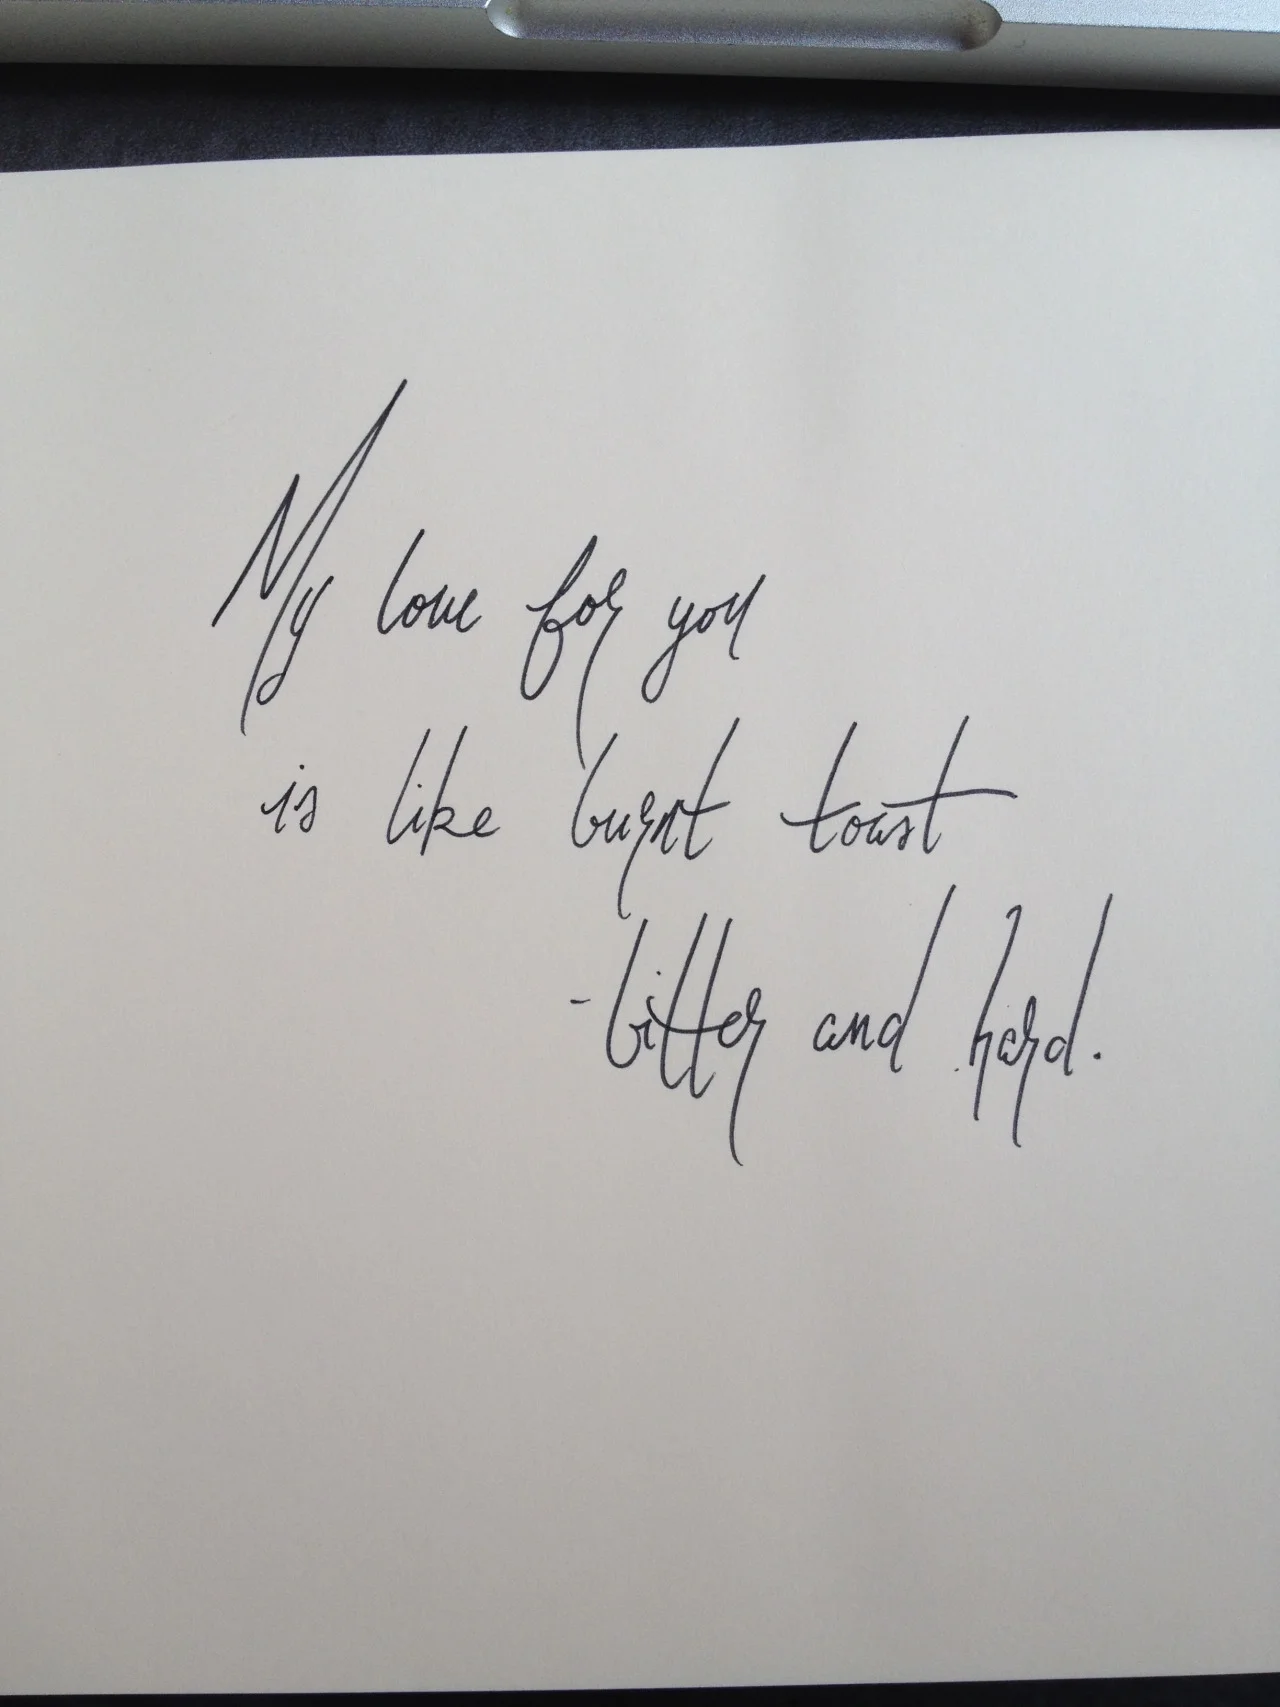 My love for you
is like burnt toast
- bitter and hard.